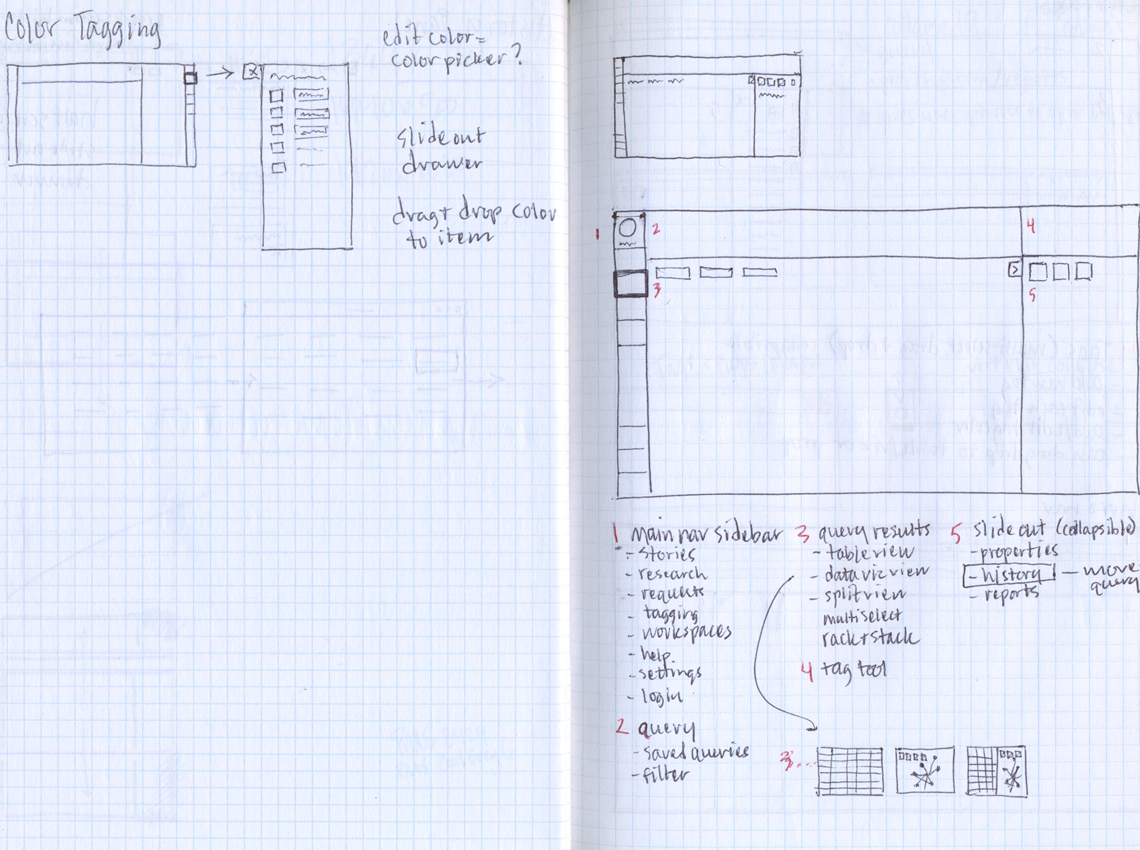 Color Tagging
edit color =
color picker?
slide out
drawer
drag + drop color
to item
1
2
4
3
5
1 main nav sidebar
- stories
- research
- requests
- tagging
- workspaces
- help
- settings
- login
2 query
- saved queries
- filter
3 query results
- table view
- data viz view
- split view
multiselect
rack + stack
4 tag tool
5 slide out (collapsible)
- properties
- history — move
query
- reports
3...